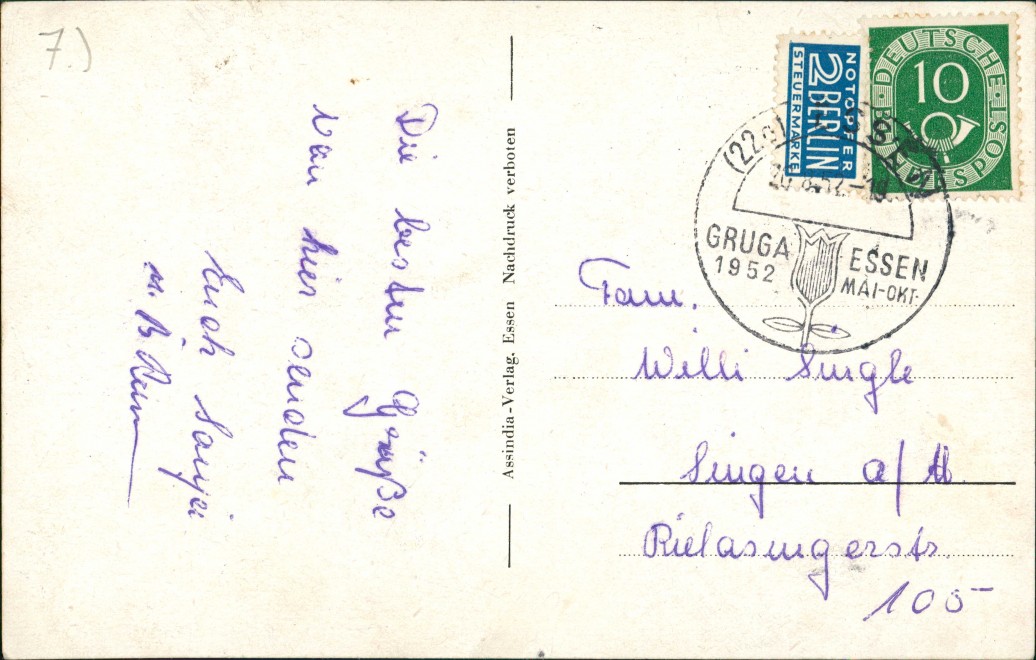 7.)
Die besten Grüße
von hier senden
Euch
u. B.
Assindia-Verlag, Essen Nachdruck verboten
NOTOPFER
2 BERLIN
STEUERMARKE
DEUTSCHE
BUNDESPOST
10
(22a) ESSEN
8.52
GRUGA ESSEN
1952 MAI-OKT.
Fam.
Willi Single
Singen a/H.
Rielasingerstr.
105